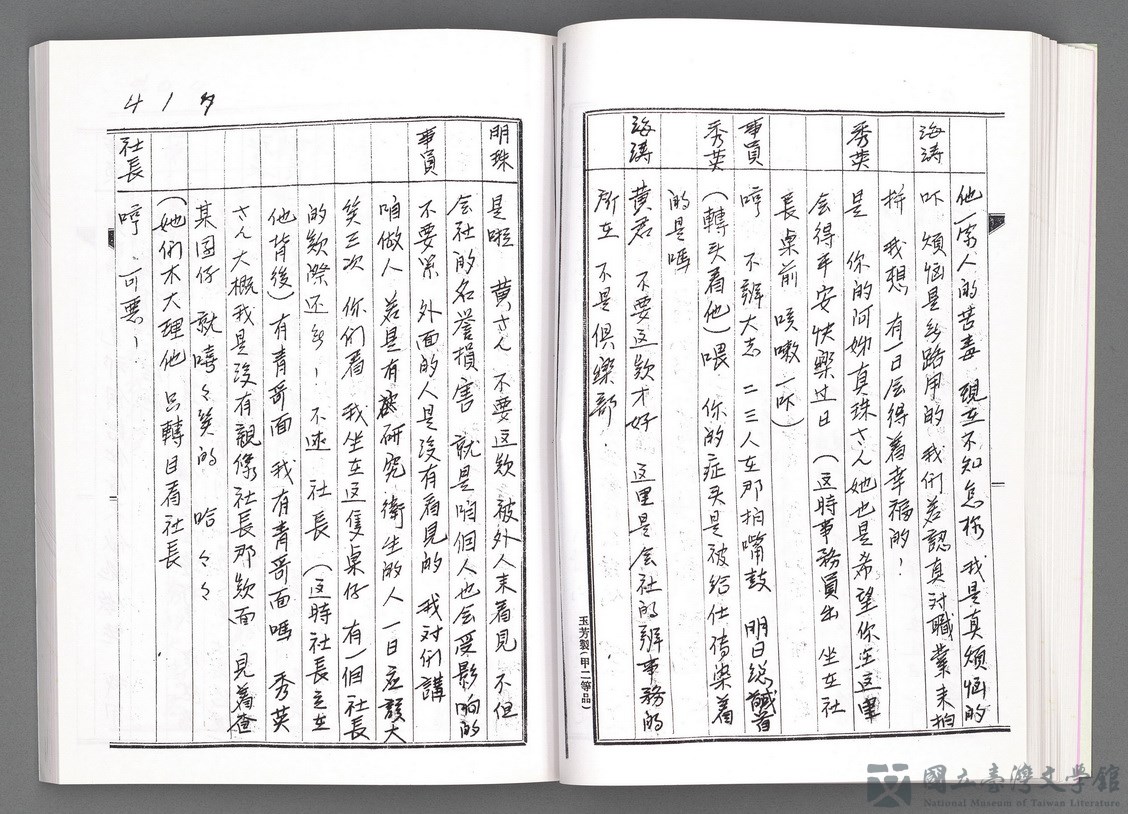 他一家人的苦毒 現在不知怎樣 我是真煩悩的
海濤 吥 煩悩是無路用的 我們若認真対職業来拍
拼 我想 有一日会得着幸福的！
秀英 是 你的阿姊真珠さん她也是希望你在這里
会得平安快樂过日 （這時事務員出 坐在社
長桌前 咳嗽一吥）
事員 哼 不辦大志 二三人在那拍嘴鼓 明日總
秀英 （轉头看他）喂 你的症头是被給仕傳染着
的是嗎
海濤 黄君 不要這欵才好 这里是会社的辦事務的
所在 不是俱樂部．
玉芳製（甲二等品）
41
明珠 是啦 黄さん 不要這欵 被外人来看見 不但
会社的名誉損害 就是咱個人也会受影响的
事員 不要緊 外面的人是沒有看見的 我对你講
咱做人 若是有研究衛生的人 一日应該大
笑三次 你們看 我坐在這隻桌仔 有一個社長
的欵際还無！ 不速 社長 （这時社長立在
他背後）有青哥面 我有青哥面嗎 秀英
さん大概我是沒有親像社長那欵面 見着查
某囡仔 就嘻々笑的 哈々々
（她们不大理他 只轉目看社長
社長 哼．可悪！
國立臺灣文學館
National Museum of Taiwan Literature